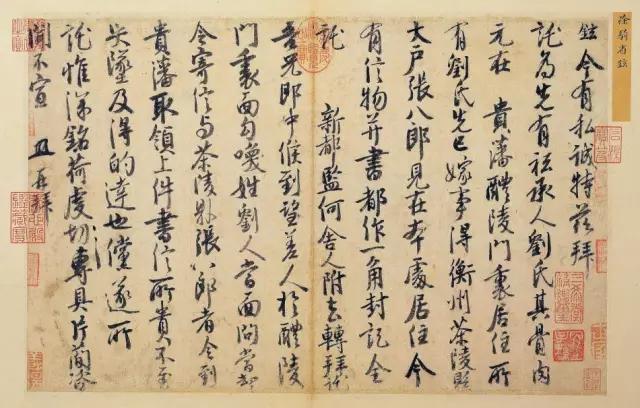 徐騎省鉉
鉉今有私誠特茲拜
託為先有祗承人劉氏其骨肉
元在 貴藩醴陵門裏居住所
有劉氏先已嫁事得衡州茶陵縣
大户張八郎見在本處居住今
有信物并書都作一角封記全
託 新都監何舍人附去轉拜託
吾兄郎中候到望差人於醴陵
門裏面勾喚姓劉人當面問當却
令寄信与茶陵縣張八郎者令到
貴藩取領上件書信所貴不至
失墜及得的達也儻遂所
託惟深銘荷虔切專具片簡咨
聞不宣 再拜